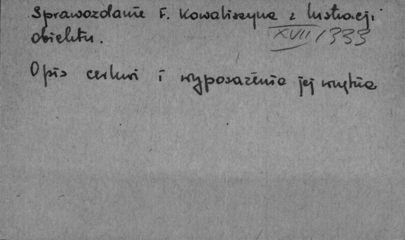 Sprawozdanie F. Kowaliszyna z lustracji
obiektu.
XVII/333
Opis cerkwi i wyposażenia jej wnętrza